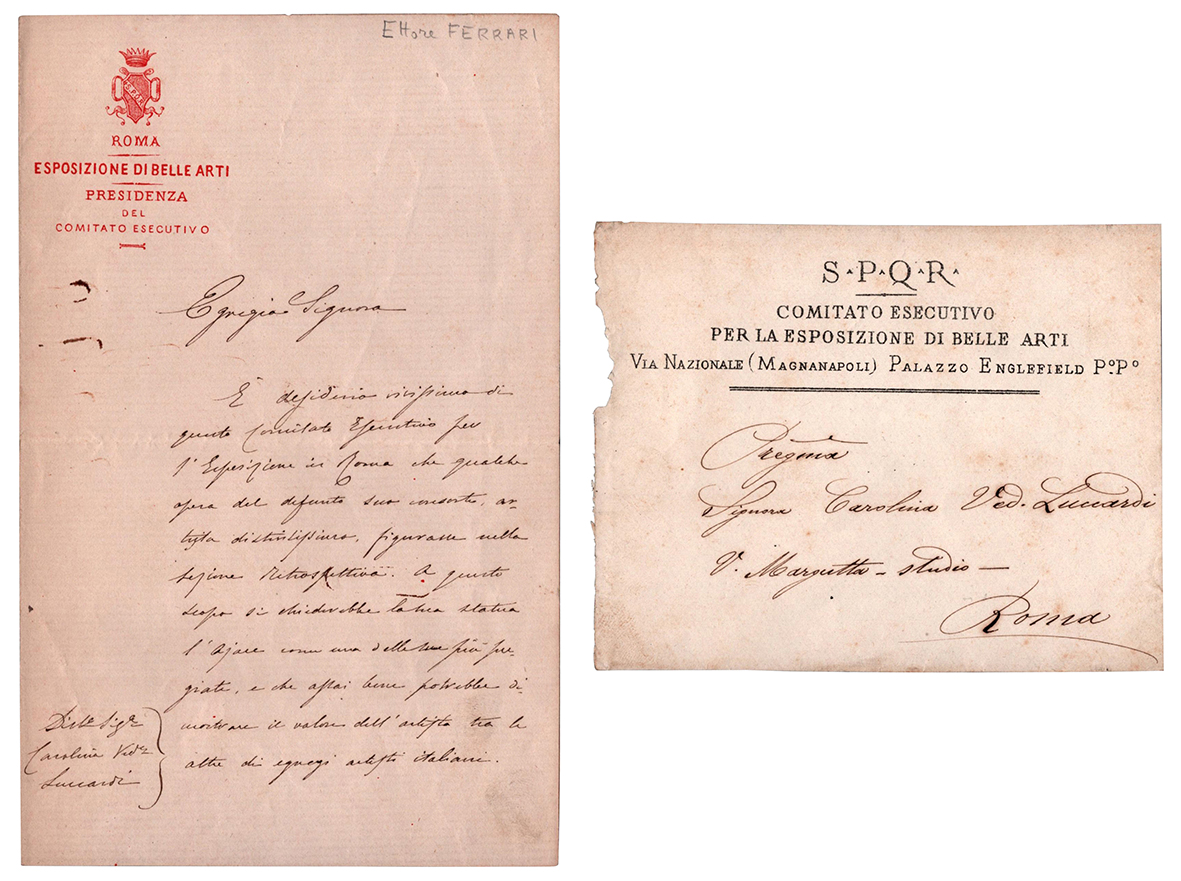 Ettore FERRARI
S.P.Q.R.
ROMA
ESPOSIZIONE DI BELLE ARTI
PRESIDENZA
DEL
COMITATO ESECUTIVO
Egregia Signora
È desiderio vivissimo di
questo Comitato Esecutivo per
l'Esposizione in Roma che qualche
opera del defunto suo consorte, ar-
tista distintissimo, figurasse nella
sezione Retrospettiva. A questo
scopo si chiederebbe la sua statua
l'Ajace come una delle sue più pre-
giate, e che assai bene potrebbe di-
mostrare il valore dell'artista tra le
altre di egregi artisti italiani.
Distª Sigª
Carolina Vedª
Luccardi
S·P·Q·R·
COMITATO ESECUTIVO
PER LA ESPOSIZIONE DI BELLE ARTI
VIA NAZIONALE (MAGNANAPOLI) PALAZZO ENGLEFIELD Pº Pº
Pregma
Signora Carolina Ved. Luccardi
V. Margutta - studio -
Roma